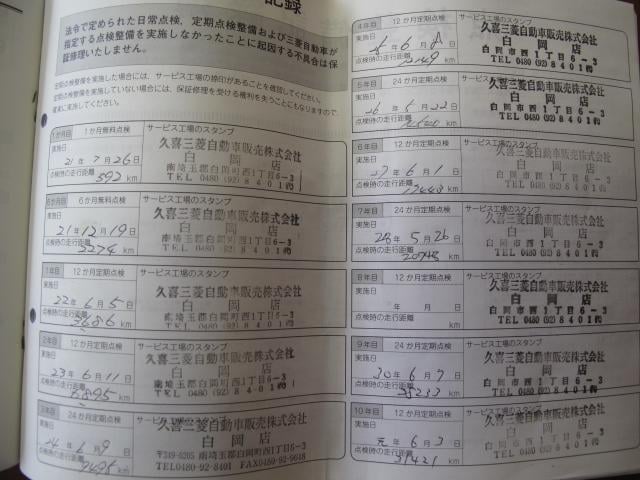 記録
法令で定められた日常点検、定期点検整備および三菱自動車が
指定する点検整備を実施しなかったことに起因する不具合は保
証修理いたしません。
定期点検整備を実施した場合には、サービス工場の捺印があることを確認してください。
定期点検整備を実施していない場合には、保証修理を受ける権利を失うことにもなりますので、
確実に実施してください。
1か月目 1か月無料点検 サービス工場のスタンプ
実施日
21年7月26日
点検時の走行距離
592 km
久喜三菱自動車販売株式会社
白岡店
南埼玉郡白岡町西1丁目6-3
TEL 0480 (92) 8401
6か月目 6か月無料点検 サービス工場のスタンプ
実施日
21年12月19日
点検時の走行距離
2274 km
久喜三菱自動車販売株式会社
白岡店
南埼玉郡白岡町西1丁目6-3
TEL 0480 (92) 8401
1年目 12か月定期点検 サービス工場のスタンプ
実施日
22年6月5日
点検時の走行距離
3686 km
久喜三菱自動車販売株式会社
白岡店
南埼玉郡白岡町西1丁目6-3
TEL 0480 (92) 8401
2年目 12か月定期点検 サービス工場のスタンプ
実施日
23年6月11日
点検時の走行距離
6895 km
久喜三菱自動車販売株式会社
白岡店
南埼玉郡白岡町西1丁目6-3
TEL 0480 (92) 8401
3年目 24か月定期点検 サービス工場のスタンプ
実施日
年 月9日
点検時の走行距離
km
久喜三菱自動車販売株式会社
白岡店
〒349-0205 南埼玉郡白岡町西1丁目6-3
TEL0480-92-8401 FAX0480-92-9648
4年目 12か月定期点検 サービス工場のスタンプ
実施日
年6月8日
点検時の走行距離
km
久喜三菱自動車販売株式会社
白岡店
白岡市西1丁目6-3
TEL 0480 (92) 8401㈹
5年目 24か月定期点検 サービス工場のスタンプ
実施日
26年5月22日
点検時の走行距離
km
久喜三菱自動車販売株式会社
白岡店
白岡市西1丁目6-3
TEL 0480 (92) 8401㈹
6年目 12か月定期点検 サービス工場のスタンプ
実施日
27年6月1日
点検時の走行距離
km
久喜三菱自動車販売株式会社
白岡店
白岡市西1丁目6-3
TEL 0480 (92) 8401㈹
7年目 24か月定期点検 サービス工場のスタンプ
実施日
28年5月26日
点検時の走行距離
20748 km
久喜三菱自動車販売株式会社
白岡店
白岡市西1丁目6-3
TEL 0480 (92) 8401㈹
8年目 12か月定期点検 サービス工場のスタンプ
実施日
年 月 日
点検時の走行距離
km
久喜三菱自動車販売株式会社
白岡店
白岡市西1丁目6-3
TEL 0480 (92) 8401㈹
9年目 24か月定期点検 サービス工場のスタンプ
実施日
30年6月7日
点検時の走行距離
km
久喜三菱自動車販売株式会社
白岡店
白岡市西1丁目6-3
TEL 0480 (92) 8401㈹
10年目 12か月定期点検 サービス工場のスタンプ
実施日
元年6月3日
点検時の走行距離
31421 km
久喜三菱自動車販売株式会社
白岡店
白岡市西1丁目6-3
TEL 0480 (92) 8401㈹